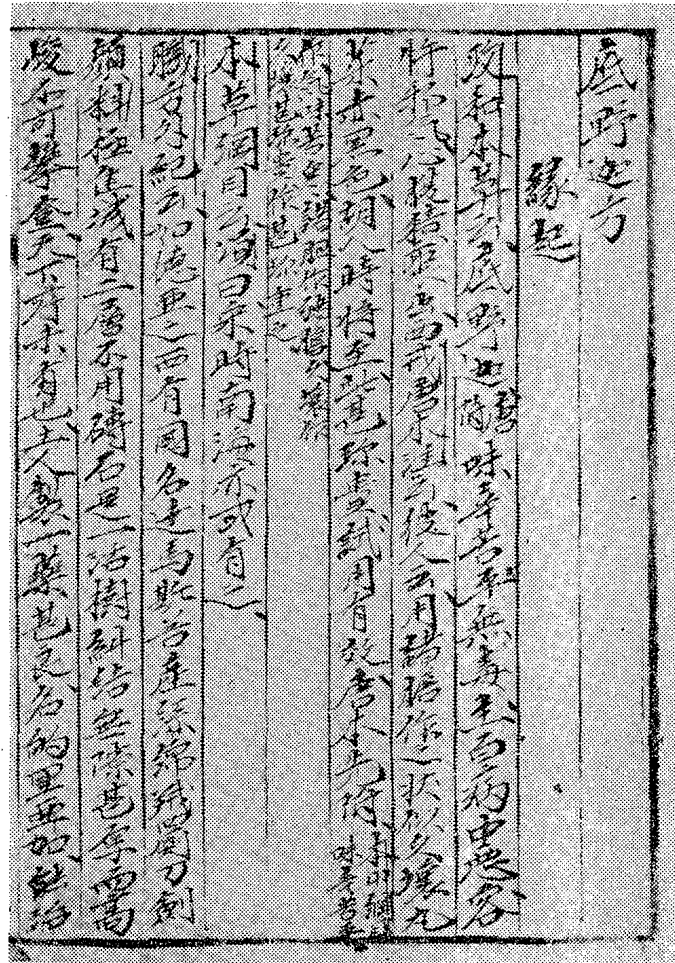 底野迦方
緣起
政和本草云底野迦味辛苦平無毒主百病中惡客
忤邪氣心腹積聚出西戎唐本注云彼人云用諸膽作之狀似久壞丸
藥赤黑色胡人時將至此甚珍貴試用有效唐本先附
味辛苦平
本草綱目云頌曰宋時南海亦或有之
職方外紀云如德亞之西有國名達馬斯谷產絲綿絨罽刀劍
顏料極佳城有二層不用磚石是一活樹糾結無隙甚厚而高
峻不可攀登天下所未有也土人製一藥甚良名的里亞加能治